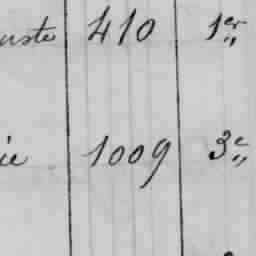 uste 410 1er
ie 1009 3e